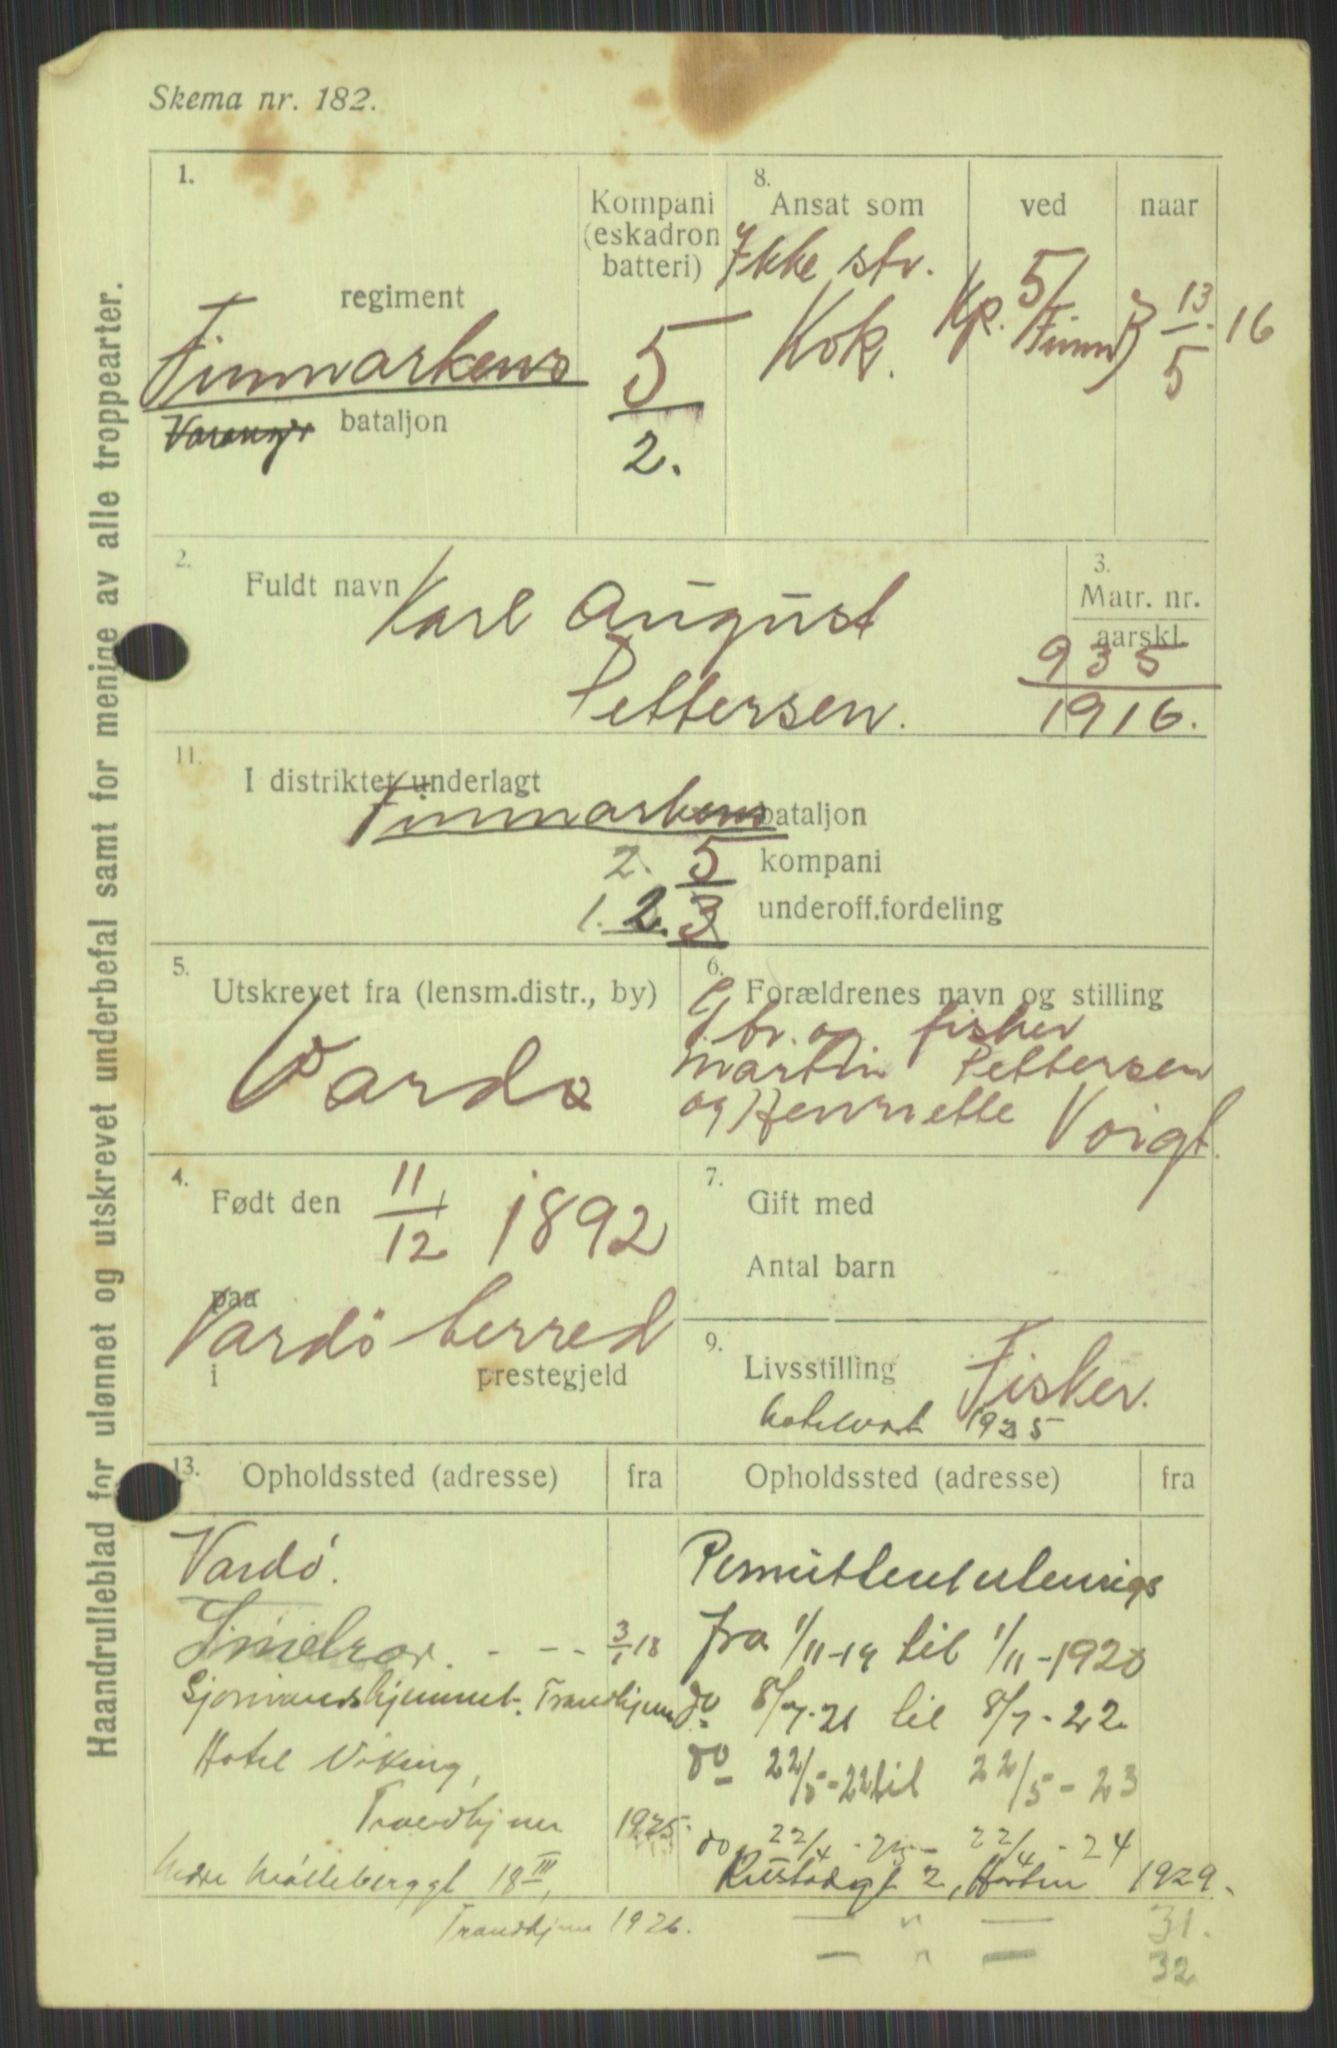 Skema nr. 182.
Haandrulleblad for ulønnet og utskrevet underbefal samt for menige av alle troppearter.
1.
regiment
Finmarkens
Varanger bataljon
Kompani
(eskadron
batteri)
5
2.
8.
Ansat som
ved
naar
Ikke str.
Kok.
Kp. 5/Finm
13/5 16
2.
Fuldt navn Karl August
Pettersen.
3.
Matr. nr.
aarskl.
935
1916.
11.
I distriktet underlagt
Finmarkens bataljon
2. 5 kompani
1. 2. 3 underoff.fordeling
5.
Utskrevet fra (lensm.distr., by)
Vardø
6.
Forældrenes navn og stilling
Gbr. og fisker
Martin Pettersen
og Henriette Voigt.
4.
Født den 11/12 1892
paa
Vardö herred
i prestegjeld
7.
Gift med
Antal barn
9.
Livsstilling Fisker.
hotelvert 1925
13.
Opholdssted (adresse) fra
Vardö.
- - - 3/1 18
Sjømandshjemmet. Trondhjem
Hotel Viking,
Trondhjem 1925.
Nedre Mølleberggt 18 III,
Trondhjem 1926.
Opholdssted (adresse) fra
Permittert utenrigs
fra 1/11-19 til 1/11-1920
do 8/7-21 til 8/7-22
do 22/5-22 til 22/5-23
do 22/4 - 23 - 22/4 - 24
2, Horten 1929.
— " — 31.
— " — 32